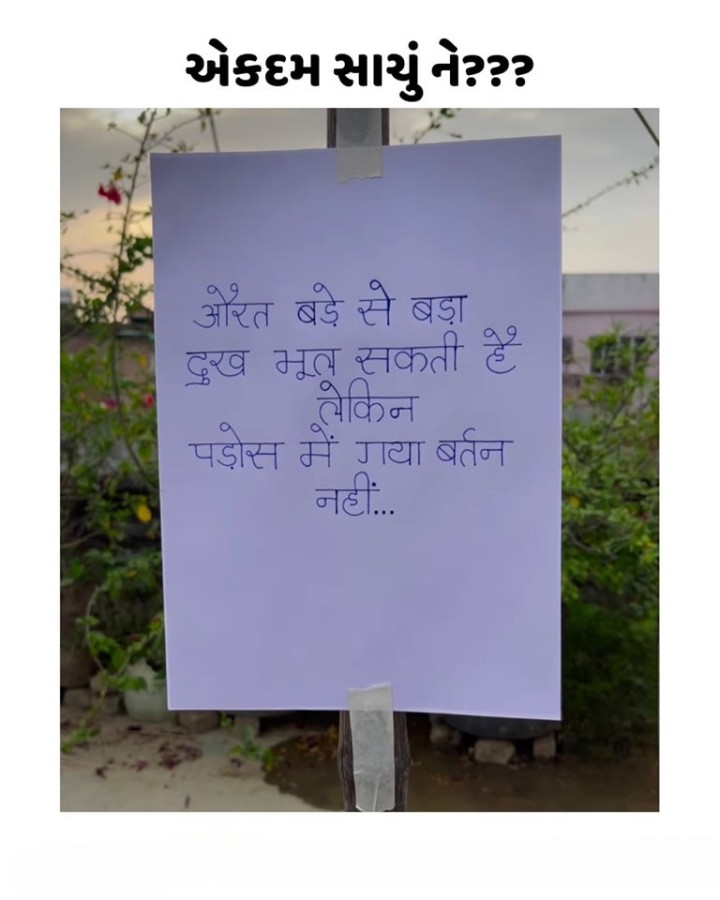 એકદમ સાચું ને???
औरत बड़े से बड़ा
दुख भूल सकती है
लेकिन
पड़ोस में गया बर्तन
नहीं...